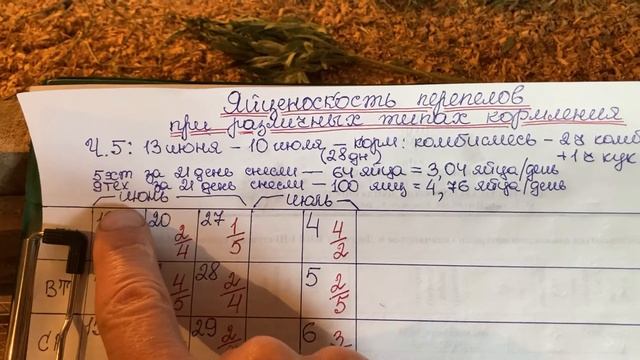 Яйценоскость перепелов
при различных типах кормления
Ч.5: 13 июня – 10 июля – корм: комбисмесь – 2ч комб
(28 дн) +1ч кук
5 эст за 21 день снесли — 64 яйца = 3,04 яйца/день
9 тех за 21 день снесли – 100 яиц = 4,76 яйца/день
июнь июль
20 2/4 27 1/5 4 4/2
ВТ 4/5 28 2/4 5 2/5
29 6